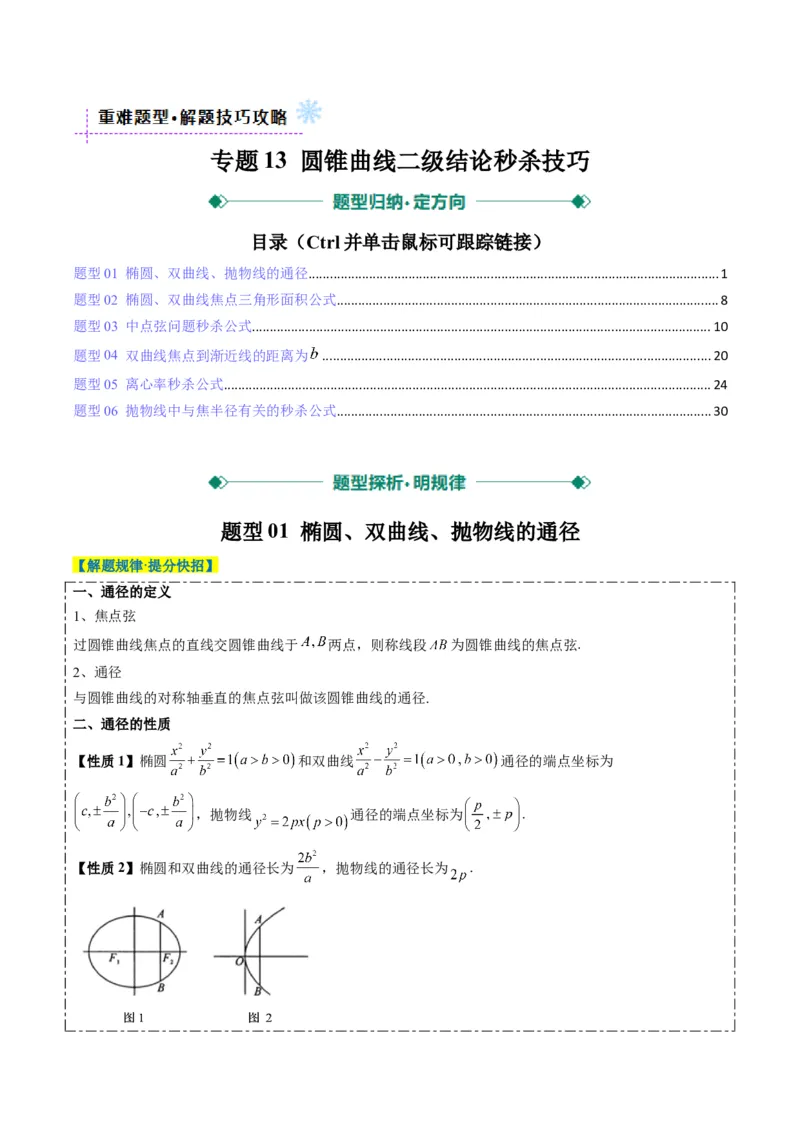 重难题型·解题技巧攻略
专题13 圆锥曲线二级结论秒杀技巧
题型归纳·定方向
目录（Ctrl并单击鼠标可跟踪链接）
题型01 椭圆、双曲线、抛物线的通径........1
题型02 椭圆、双曲线焦点三角形面积公式........8
题型03 中点弦问题秒杀公式........10
题型04 双曲线焦点到渐近线的距离为b........20
题型05 离心率秒杀公式........24
题型06 抛物线中与焦半径有关的秒杀公式........30
题型探析·明规律
题型01 椭圆、双曲线、抛物线的通径
【解题规律·提分快招】
一、通径的定义
1、焦点弦
过圆锥曲线焦点的直线交圆锥曲线于A,B两点，则称线段AB为圆锥曲线的焦点弦.
2、通径
与圆锥曲线的对称轴垂直的焦点弦叫做该圆锥曲线的通径.
二、通径的性质
【性质1】椭圆 x²/a² + y²/b² =1(a>b>0)和双曲线 x²/a² − y²/b² =1(a>0,b>0)通径的端点坐标为
(c,± b²/a),(−c,± b²/a)，抛物线 y²=2px(p>0) 通径的端点坐标为(p/2,±p).
【性质2】椭圆和双曲线的通径长为 2b²/a ，抛物线的通径长为 2p .
A
F₁ F₂
B
A
O
B
图1 图 2